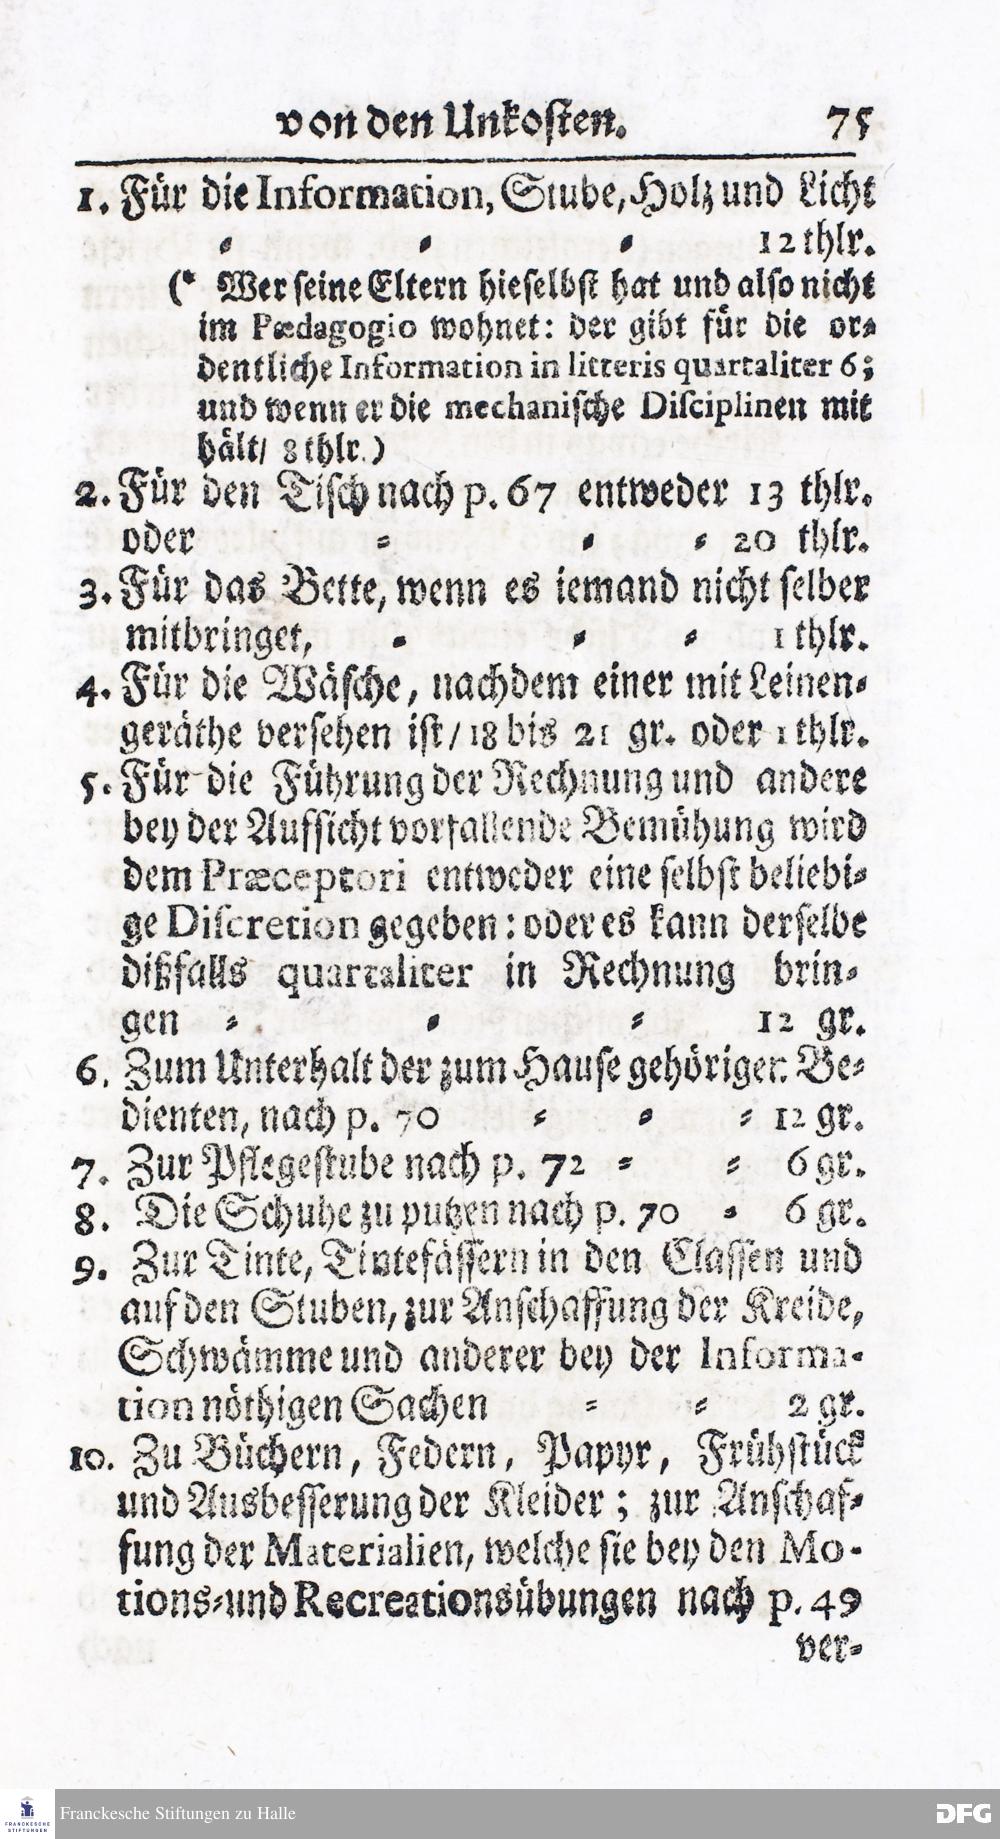 von den Unkosten. 75
1. Für die Information, Stube, Holz und Licht
⸗ ⸗ ⸗ 12 thlr.
(* Wer seine Eltern hieselbst hat und also nicht
im Pædagogio wohnet: der gibt für die or⸗
dentliche Information in litteris quartaliter 6;
und wenn er die mechanische Disciplinen mit
hält/ 8 thlr.)
2. Für den Tisch nach p. 67 entweder 13 thlr.
oder ⸗ ⸗ ⸗ 20 thlr.
3. Für das Bette, wenn es iemand nicht selber
mitbringet, ⸗ ⸗ ⸗ 1 thlr.
4. Für die Wäsche, nachdem einer mit Leinen⸗
geräthe versehen ist/ 18 bis 21 gr. oder 1 thlr.
5. Für die Führung der Rechnung und andere
bey der Aufsicht vorfallende Bemühung wird
dem Præceptori entweder eine selbst beliebi⸗
ge Discretion gegeben: oder es kann derselbe
dißfalls quartaliter in Rechnung brin⸗
gen ⸗ ⸗ ⸗ 12 gr.
6. Zum Unterhalt der zum Hause gehörigen Be⸗
dienten, nach p. 70 ⸗ ⸗ ⸗ 12 gr.
7. Zur Pflegestube nach p. 72 ⸗ ⸗ 6 gr.
8. Die Schuhe zu putzen nach p. 70 ⸗ 6 gr.
9. Zur Tinte, Tintefässern in den Classen und
auf den Stuben, zur Anschaffung der Kreide,
Schwämme und anderer bey der Informa-
tion nöthigen Sachen ⸗ ⸗ 2 gr.
10. Zu Büchern, Federn, Papyr, Frühstück
und Ausbesserung der Kleider; zur Anschaf⸗
fung der Materialien, welche sie bey den Mo-
tions⸗und Recreationsübungen nach p. 49
ver⸗
FRANCKESCHE
STIFTUNGEN
Franckesche Stiftungen zu Halle
DFG